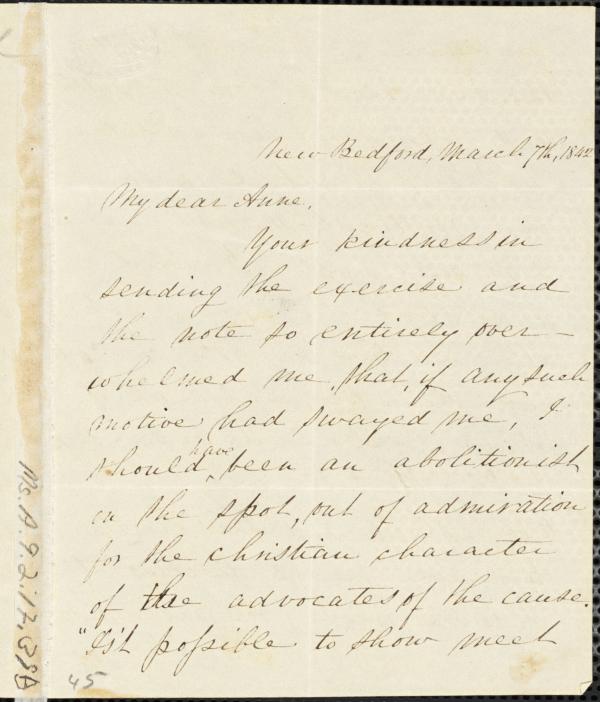 New Bedford, March 7th, 1842
My dear Anne,
Your kindness in
sending the exercise and
the note so entirely over-
whelmed me, that, if any such
motive had swayed me, I
should have been an abolitionist
on the spot, out of admiration
for the christian character
of the advocates of the cause.
"Is't possible to show meet
45
Ms.A.9.2.17,38B